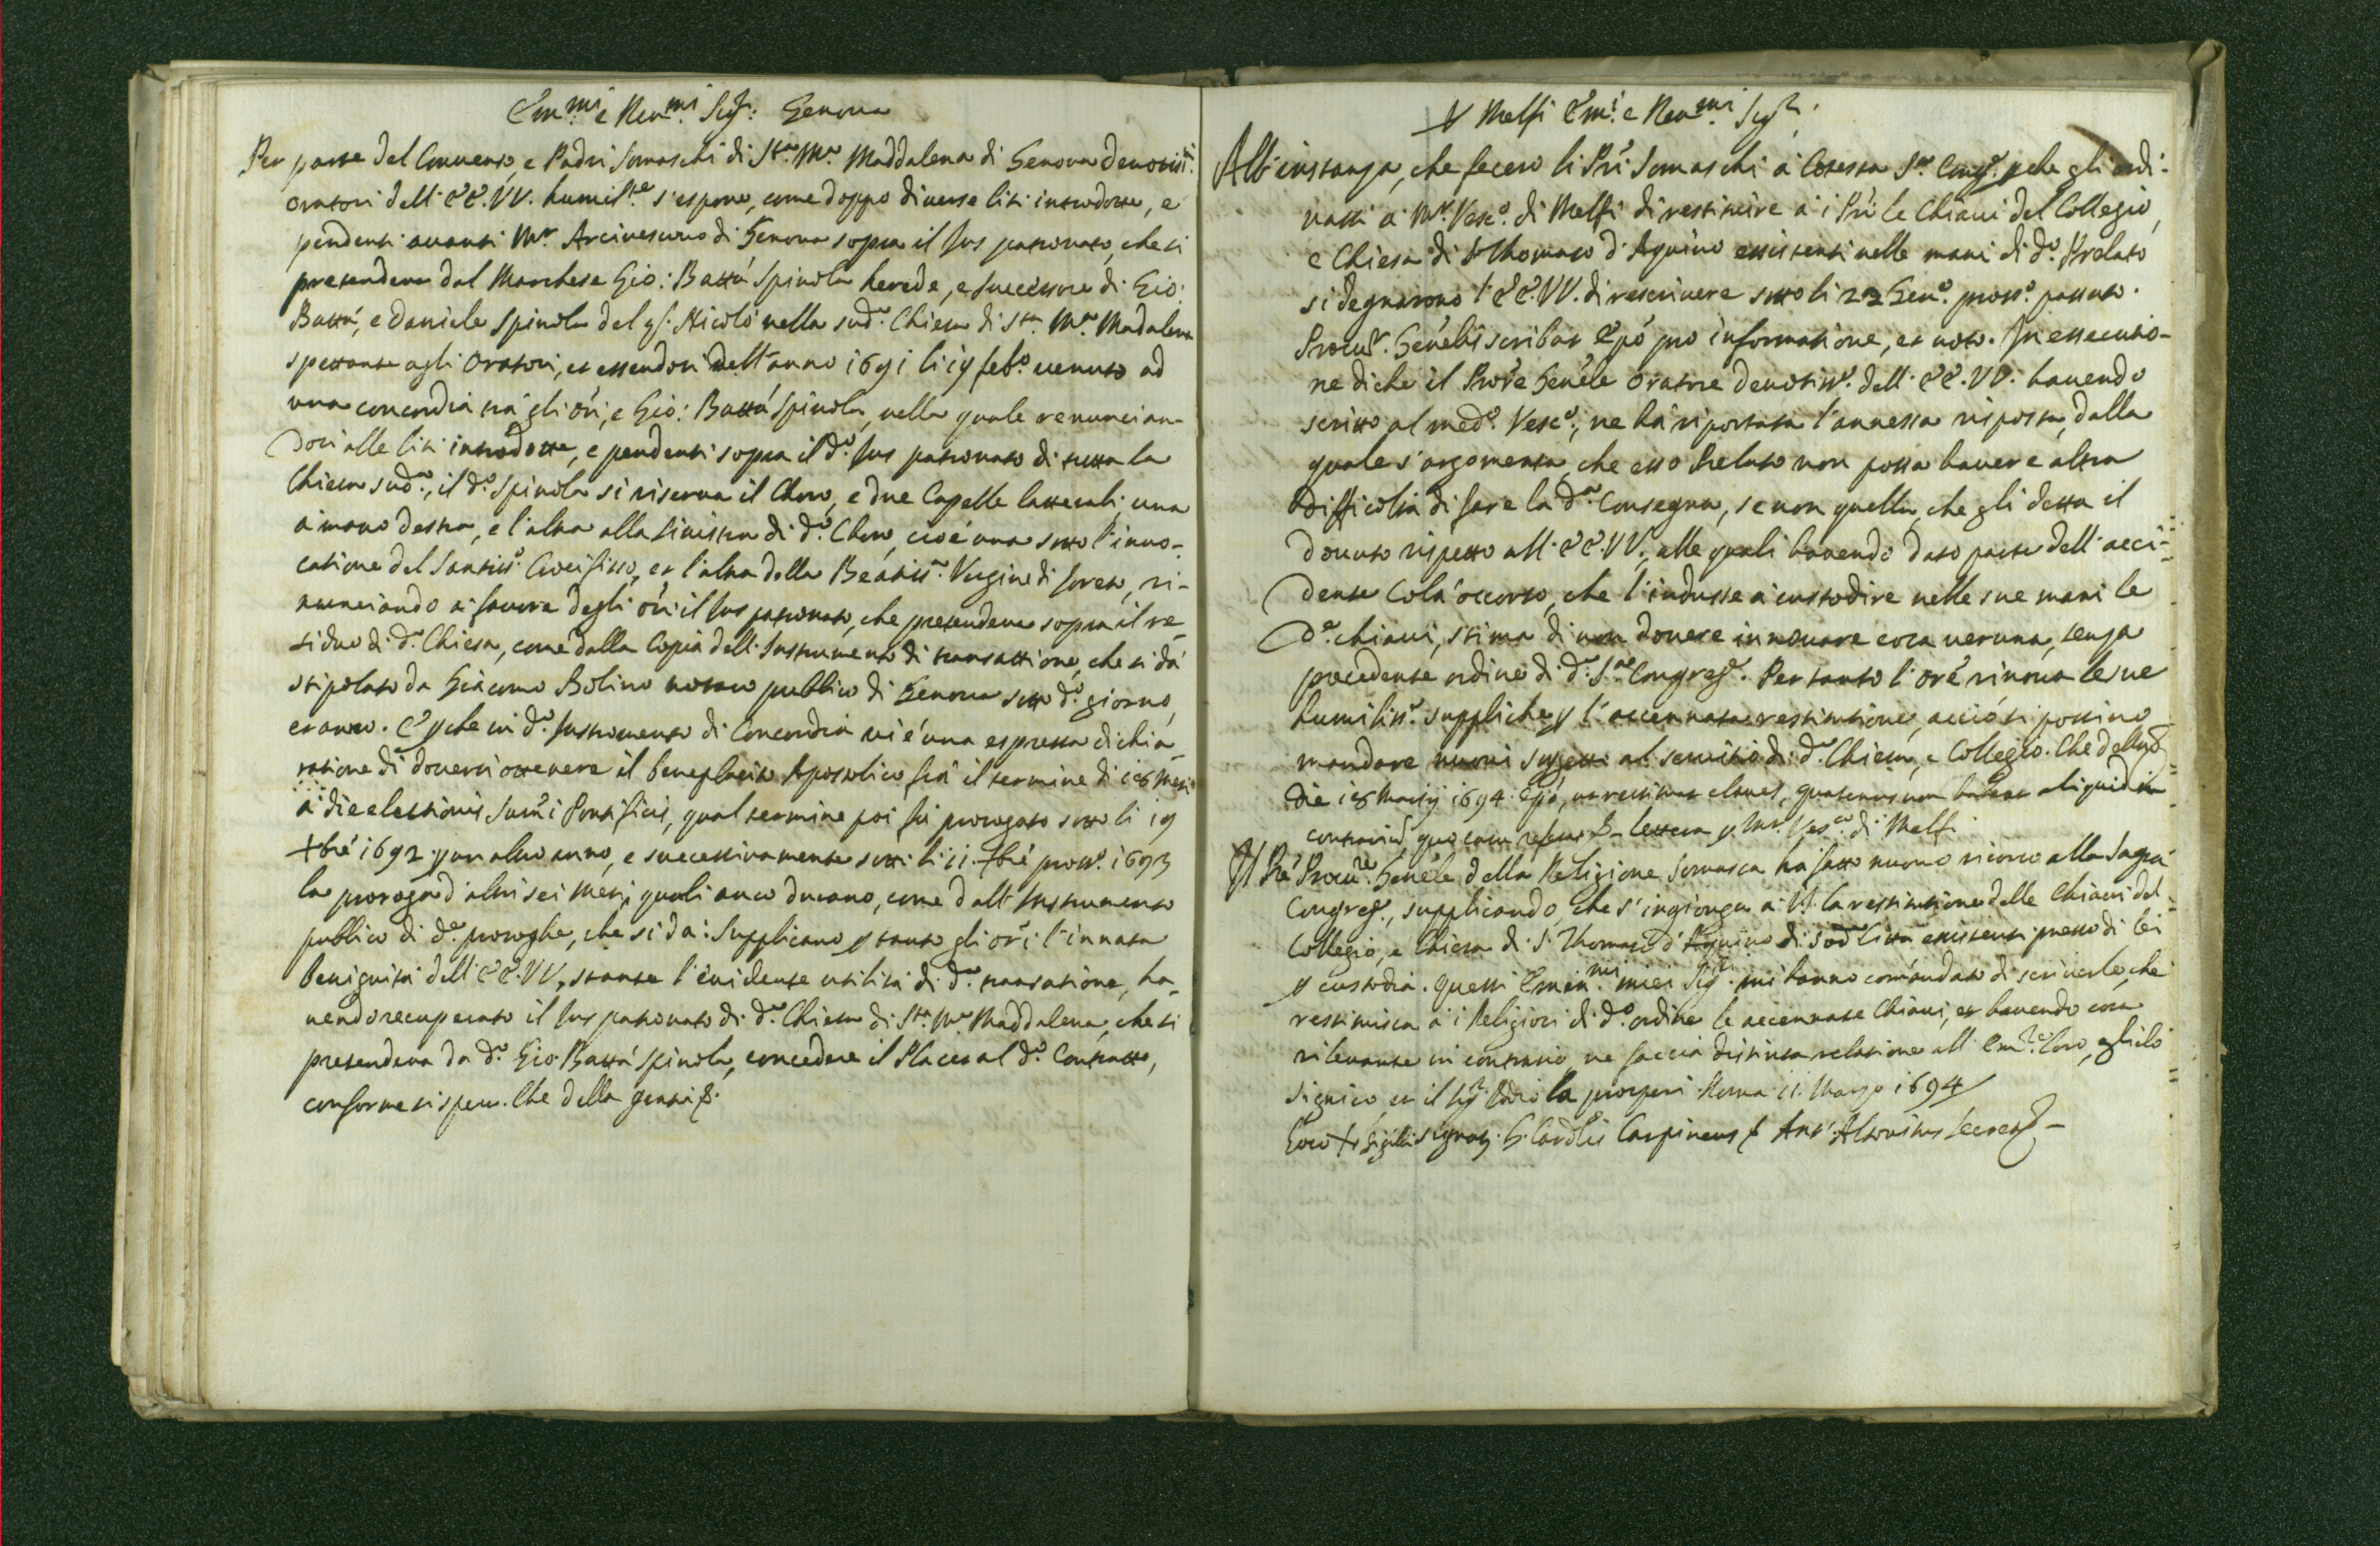 Em.mi e Reu.mi Sig.ri: Genoua
Per parte del Conuento, e Padri Somaschi di S.ta M.a Maddalena di Genoua deuotiss.i
oratori dell' EE. VV. humilm.te s'espone, come doppo diuerse liti introdotte, e
pendenti auanti M.r Arciuescouo di Genoua sopra il Jus patronato, che si
pretendeua dal Marchese Gio: Batta Spinola herede, e successore di Gio:
Batta, e Daniele Spinola del q. Nicolò nella sud.a Chiesa di S.ta M.a Madalena
spettante agli Oratori, et essendosi nell'anno 1691 li 19 feb.o uenuto ad
una concordia trà gli ori, e Gio: Batta Spinola, nella quale renuncian-
dosi alle liti introdotte, e pendenti sopra il d.o Jus patronato di tutta la
Chiesa sud.a, il d.o Spinola si riserua il Choro, e due Capelle latterali, una
a mano destra, e l'altra alla sinistra di d.o Choro, cioè una sotto l'inuo-
catione del Santiss.o Crocifisso, et l'altra della Beatiss.a Vergine di Loreto, ri-
nunciando à fauore degli ori il Jus patronato, che pretendeua sopra il re-
siduo di d.a Chiesa, come dalla Copia dell' Instrumento di transattione, che si dà
stipolato da Giacomo Bolino notaro publico di Genoua sotto d.o giorno,
et anno. E p che in d.o Instromento di Concordia ui è una espressa dichia-
ratione di douersi ottenere il beneplacito Apostolico frà il termine di 18 mesi
à die electionis Summi Pontificis, qual termine poi fù prorogato sotto li 19
Xbre 1692 p un altro anno, e successiuamente sotto li 11. Xbre pross.o 1693
la proroga d'altri sei mesi, quali anco durano, come dall' Instrumento
publico di d.e proroghe, che si dà: Supplicano p tanto gli ori l'innata
benignità dell' EE. VV., stante l'euidente utilità di d.a transatione, ha-
uendo recuperato il Jus patronato di d.a Chiesa di S.ta M.a Maddalena, che si
pretendeua da d.o Gio: Batta Spinola, concedere il Placet al d.o Contratto,
conforme si spera. Che della gratia &.
A Melfi Em.i e Reu.mi Sig.ri
All' instanza, che fecero li Pri Somaschi à Cotesta S.a Cong.e p che gli ordi-
nassi à M.r Vesc.o di Melfi di restituire à i Pri le Chiaui del Collegio,
e Chiesa di S. Thomaso d'Aquino essistenti nelle mani di d.o Prelato
si degnarono l'EE. VV. di rescriuere sotto li 22 Gen.o pross.o passato.
Procur. Genelis scribat Epo pro informatione, et uoto. In essecutio-
ne di che il Prore Genele Oratore deuotiss.o dell' EE. VV. hauendo
scritto al med.o Vesc.o, ne hà riportata l'annessa risposta, dalla
quale s'argomenta, che esso Prelato non possa hauere altra
difficoltà di fare la d.a Consegna, se non quella, che gli detta il
douuto rispetto all' EE. VV., alle quali hauendo dato parte dell' acci-
dente Colà occorso, che l'indusse à custodire nelle sue mani le
d.e chiaui, stima di non douere innouare cosa ueruna, senza
precedente ordine di d.a S.a Congreg.e. Per tanto l'ore rinoua le sue
humiliss.e suppliche p l'accennata restitutione, acciò si possino
mandare nuoui soggetti al seruitio di d.a Chiesa, e Collegio. Che della &
Die 18 Martij 1694. Epo, ut restituat claues, quatenus non habeat aliquid in
contrarium, quo casu referat &. lettera p M.r Vesc.o di Melfi
Il Pre Procu.re Genele della Religione Somasca ha fatto nuouo ricorso alla Sagra
Congreg.e, supplicando, che s'ingionga à V.S. la restitutione delle Chiaui del
Collegio, e Chiesa di S. Thomaso d'Aquino di sod.a Città esistenti presso di lei
p custodia. Questi Emin.mi miei Sig.ri mi hanno comandato di scriuerle, che
restituisca à i Religiosi di d.o ordine le accennate Chiaui, et hauendo cosa
rileuante in contrario, ne faccia distinta relatione all' Em.ze loro, e gli lo
significo, et il Sig.r Iddio la prosperi. Roma 11. Marzo 1694
Loco + Sigilli signat. G. Cardlis Carpineus & Ant. Altouitus Secret.